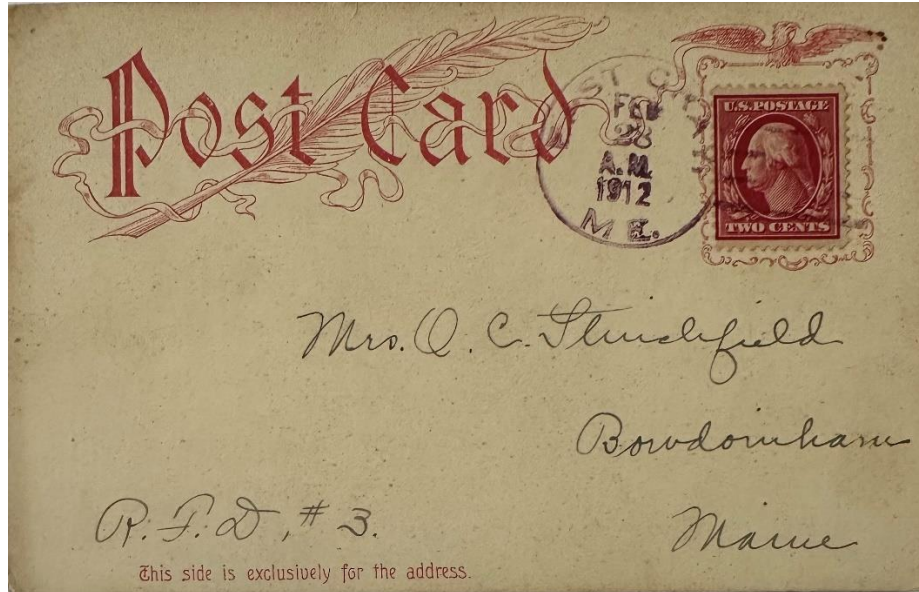 Post Card
FEB
28
A.M.
1912
ME.
U.S. POSTAGE
TWO CENTS
Mrs. O. C. Stinchfield
Bowdoinham
Maine
R. F. D. # 3.
This side is exclusively for the address.